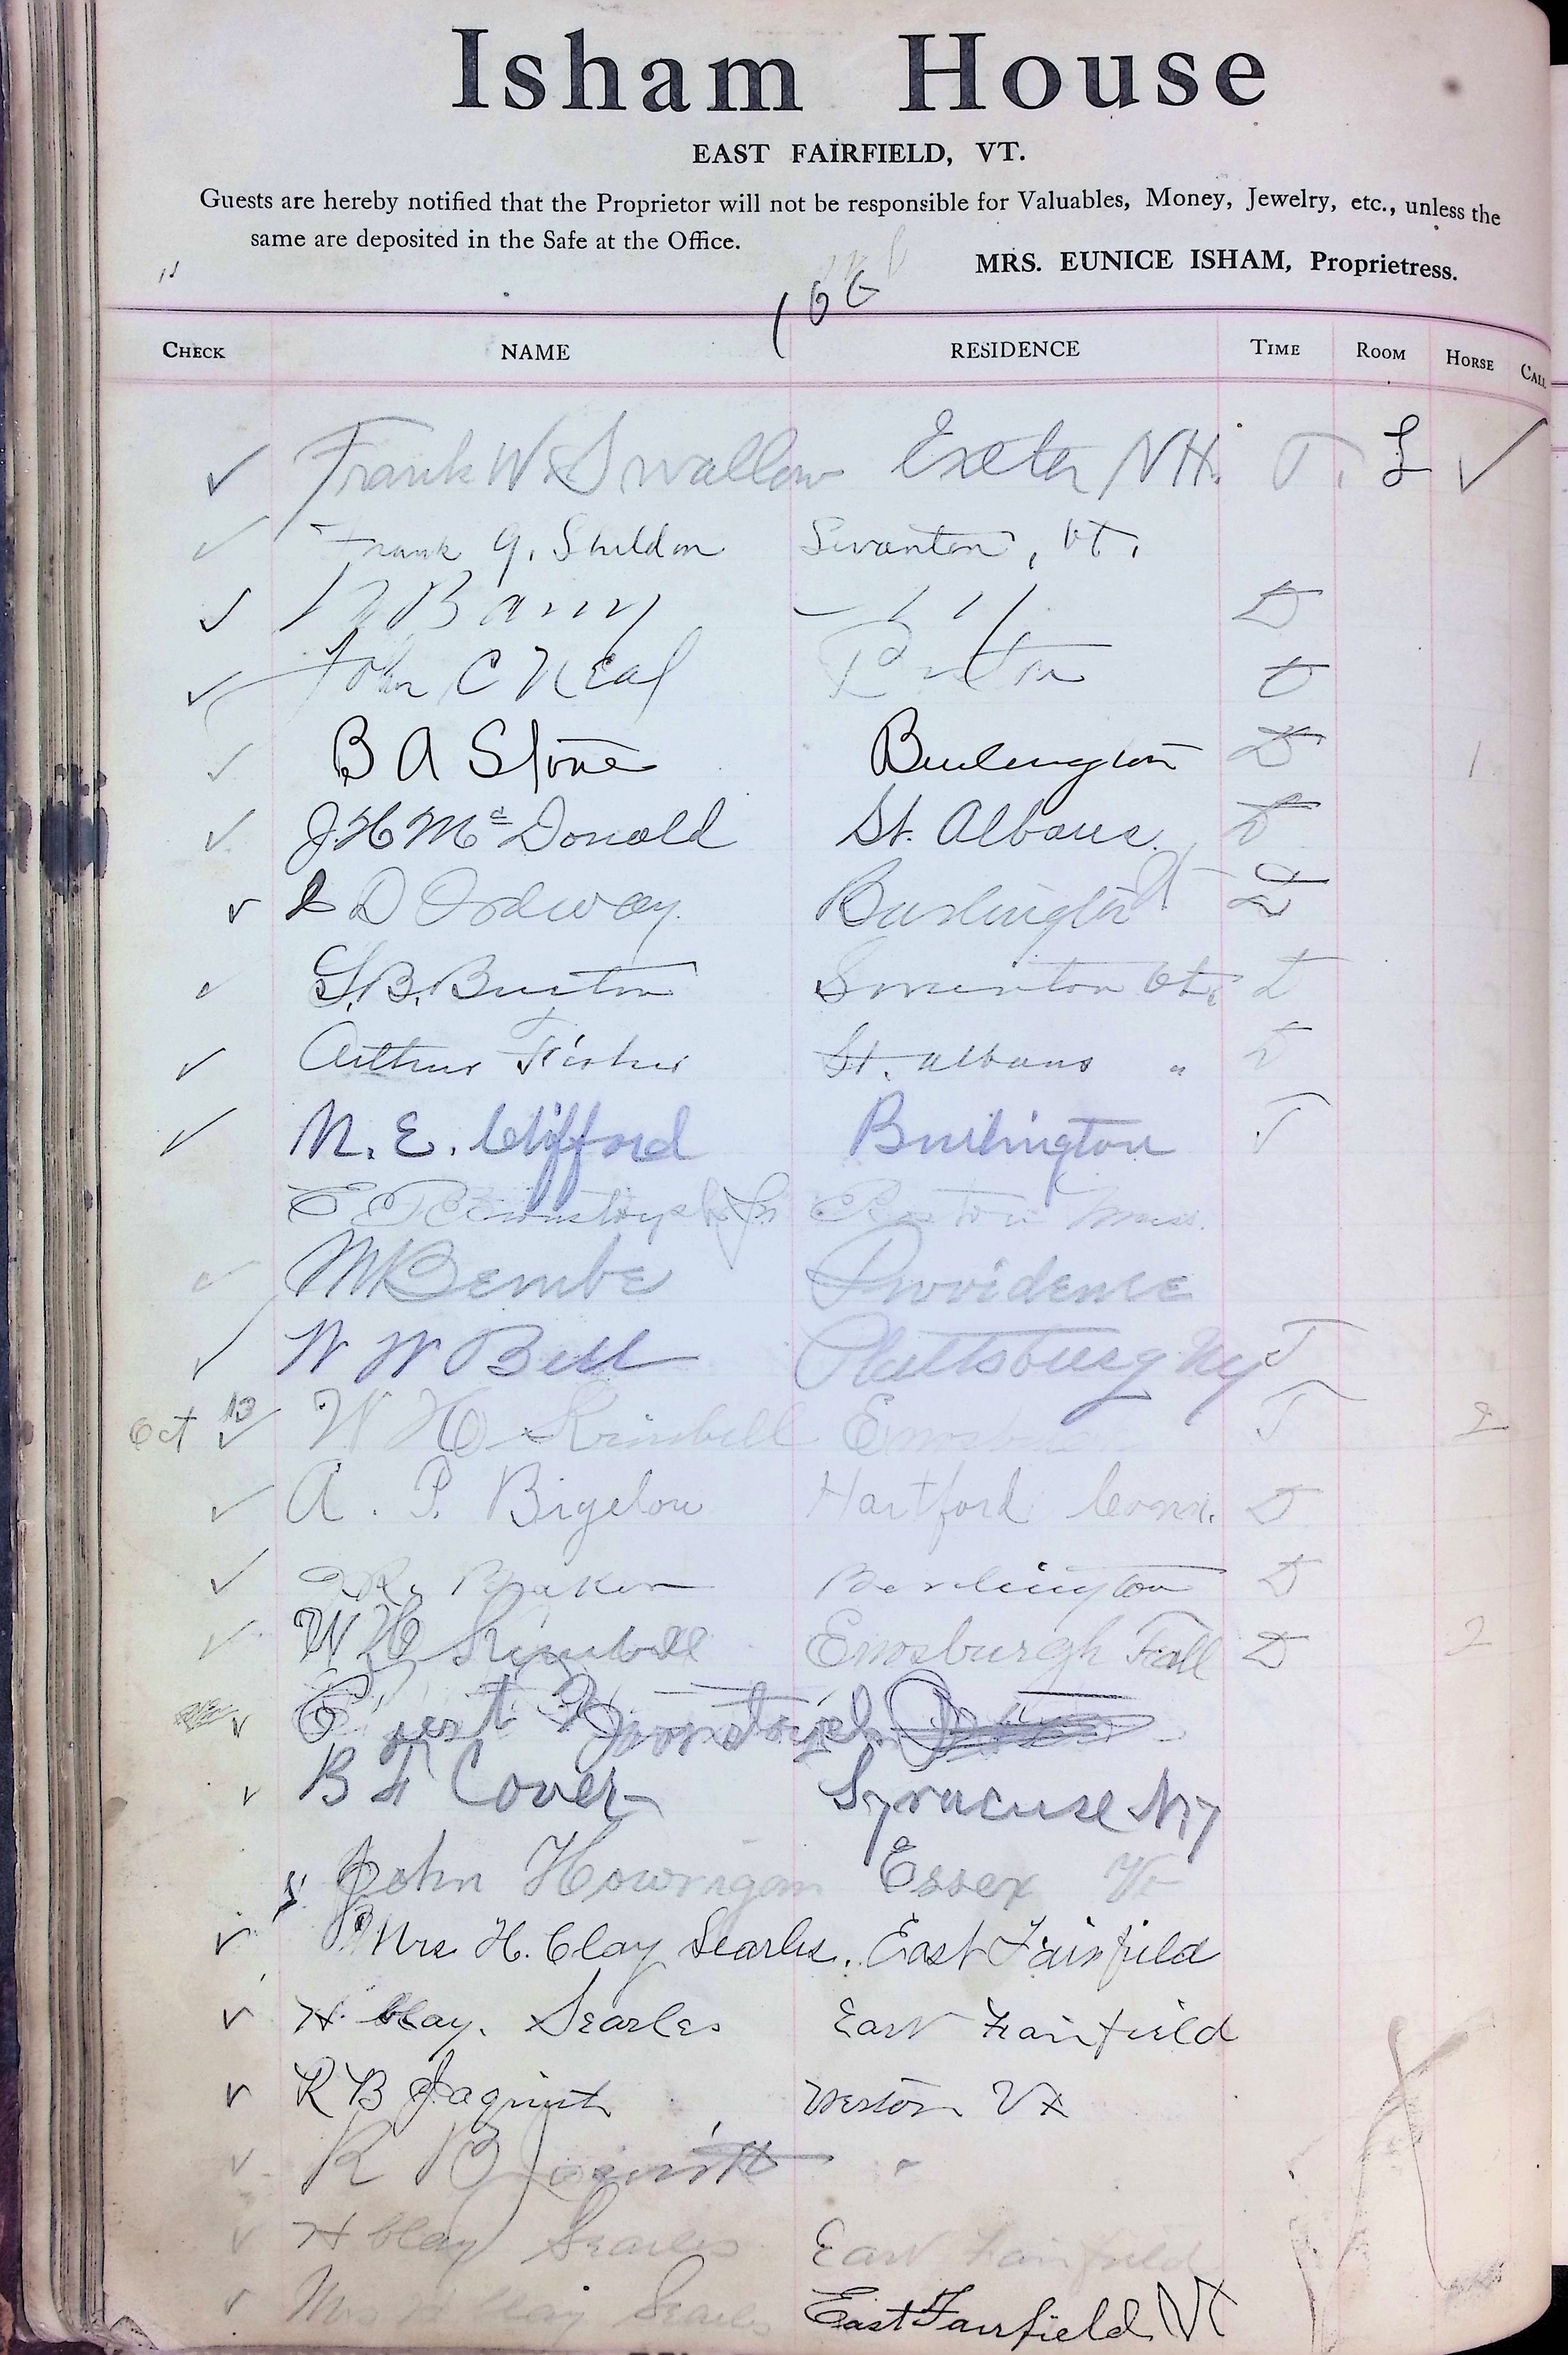 Isham House
EAST FAIRFIELD, VT.
Guests are hereby notified that the Proprietor will not be responsible for Valuables, Money, Jewelry, etc., unless the
same are deposited in the Safe at the Office.
MRS. EUNICE ISHAM, Proprietress.
CHECK NAME RESIDENCE TIME ROOM HORSE CALL
Frank W. Swallow Exeter NH. T.
Frank G. Sheldon Swanton, Vt.
Barry D
John C Neal
B A Stone Burlington D 1
J. H McDonald St. Albans D
D Ordway Burlington
G. B. Burton Swanton Vt.
Arthur St. Albans "
N. E. Clifford Burlington T
E Boston Mass.
M Bembe Providence
W W Bell Plattsburg NY T
Oct 13 W H Kimbell T 2
A. P. Bigelow Hartford Conn. D
Burlington D
W H Kimbell Enosburgh Fall D 2
B F Cover Syracuse NY
John Howrigan Essex Vt
Mrs H. Clay Searles. East Fairfield
H. Clay. Searles East Fairfield
R B Jaquith Weston Vt
R B Jaquith "
H Clay Searles East Fairfield
Mrs H Clay Searles East Fairfield Vt